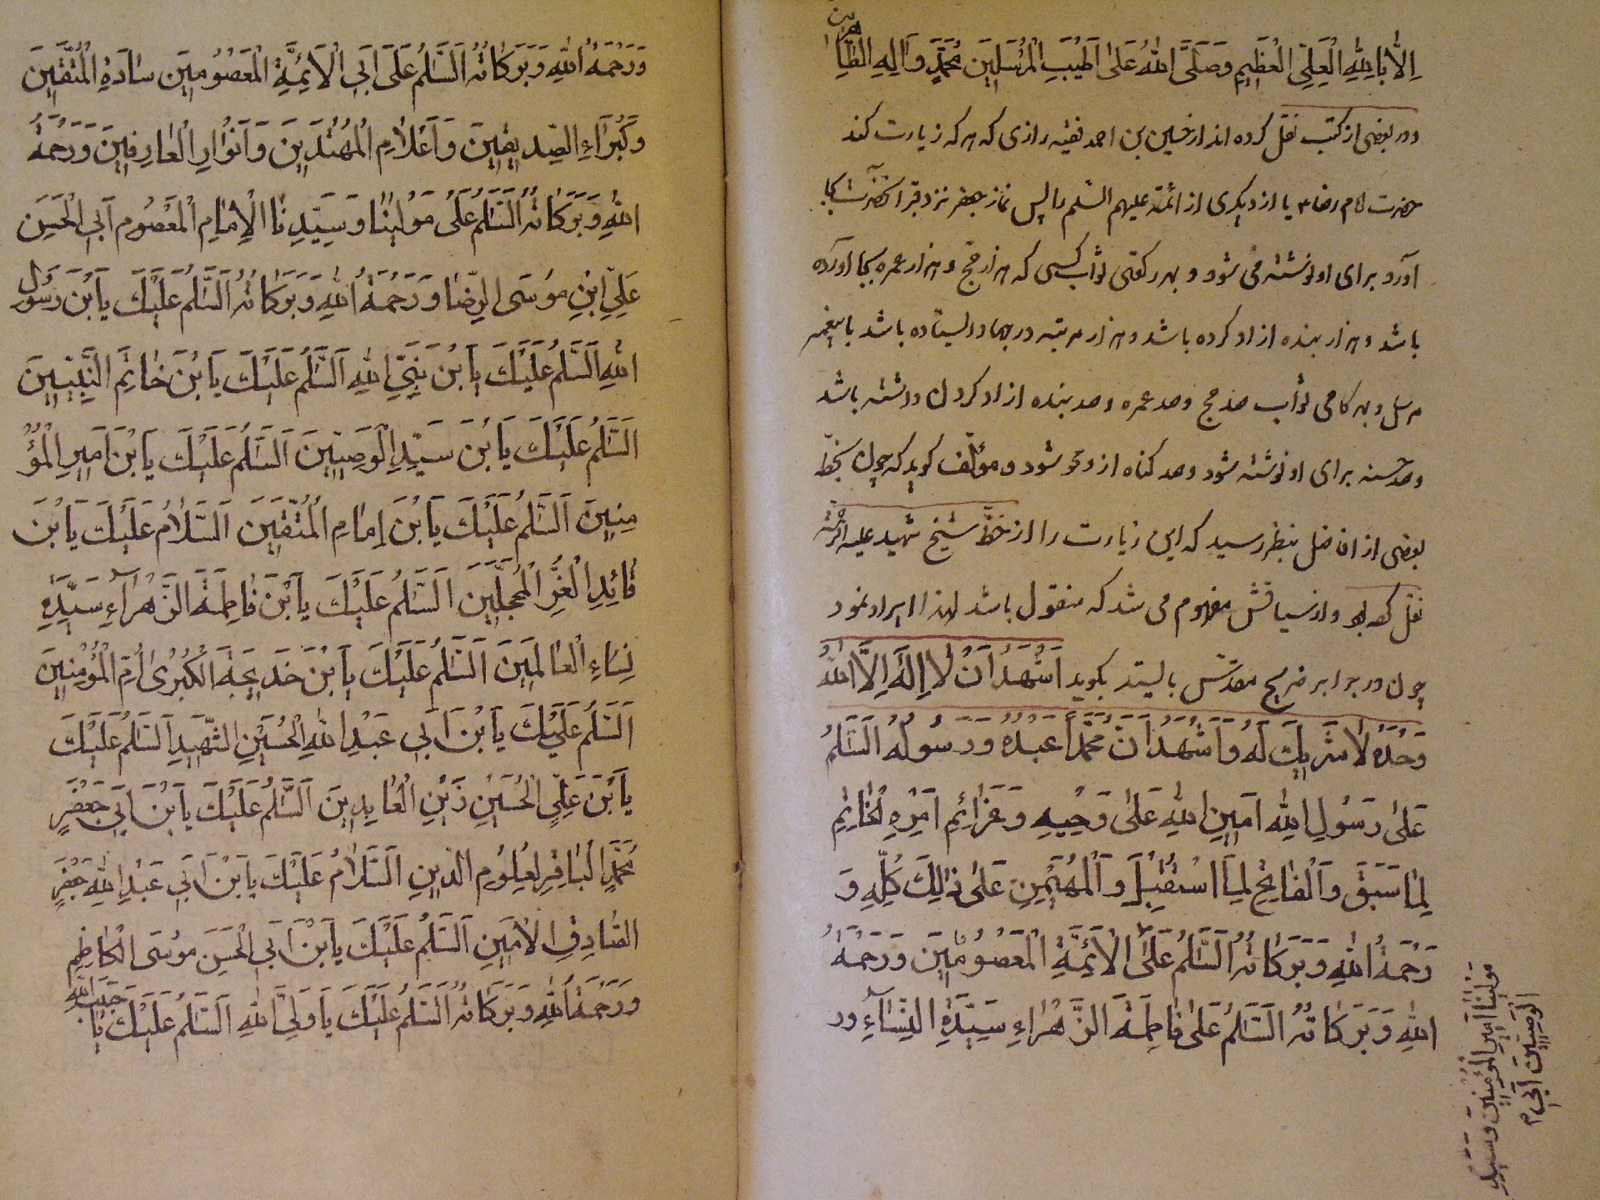 اِلّا بِاللهِ الْعَلِيِّ الْعَظِيمِ وَصَلَّى اللهُ عَلىٰ اَطْيَبِ الْمُرْسَلِينَ مُحَمَّدٍ وَآلِهِ الطّاهِرين
ودر بعضى از کتب نقل کرده اند از حسین بن احمد فقیه رازی که هر که زیارت کند
حضرت امام رضا م یا از دیکری از ائمه علیهم السّلم را پس نماز جعفر نزد قبر انحضرت بجا
آورد برای او نوشته می شود و بهر رکعتی ثواب کسی که هزار حج و هزار عمره بجا آورده
باشد و هزار بنده ازاد کرده باشد و هزار مرتبه در جهاد ایستاده باشد با پیغمبر
مرسل و بهر کامی ثواب صد حج وصد عمره وصد بنده ازاد کردن داشته باشد
وصد حسنه برای او نوشته شود وصد کناه از او محو شود و مؤلف کوید که چون بخطّ
بعضی از افاضل بنظر رسید که این زیارت را از خطّ شیخ شهید علیه الرحمة
نقل کرده بود و از سیاقش مفهوم می شد که منقول باشد لهذا ایراد نمود
چون در برابر ضریح مقدّس بایستد بکوید اَشْهَدُ اَنْ لا اِلٰهَ اِلَّا اللهُ
وَحْدَهُ لا شَرِيكَ لَهُ وَاَشْهَدُ اَنَّ مُحَمَّداً عَبْدُهُ وَرَسُولُهُ اَلسَّلمُ
عَلىٰ رَسُولِ اللهِ اَمِينِ اللهِ عَلىٰ وَحْيِهِ وَعَزائِمِ اَمْرِهِ الْخاتِمِ
لِما سَبَقَ وَالْفاتِحِ لِمَا اسْتُقْبِلَ وَالْمُهَيْمِنِ عَلىٰ ذٰلِكَ كُلِّهِ وَ
رَحْمَةُ اللهِ وَبَرَكاتُهُ اَلسَّلمُ عَلَى الْاَئِمَّةِ الْمَعْصُومِينَ وَرَحْمَةُ
اللهِ وَبَرَكاتُهُ اَلسَّلمُ عَلىٰ فاطِمَةَ الزَّهْراءِ سَيِّدَةِ النِّساءِ ور
مولينا اَمِيرِ الْمُؤْمِنِينَ وَسَيِّدِ
الْوَصِيِّينَ اَبى م
وَرَحْمَةُ اللهِ وَبَرَكاتُهُ اَلسَّلمُ عَلىٰ اَبِى الْاَئِمَّةِ الْمَعْصُومِينَ سادَةِ الْمُتَّقِينَ
وَكُبَراءِ الصِّدِّيقِينَ وَاَعْلامِ الْمُهْتَدِينَ وَاَنْوارِ الْعارِفِينَ وَرَحْمَةُ
اللهِ وَبَرَكاتُهُ اَلسَّلمُ عَلىٰ مَوْلينا وَسَيِّدِنا الْاِمامِ الْمَعْصُومِ اَبِى الْحَسَنِ
عَلِيِّ ابْنِ مُوسَى الرِّضا وَرَحْمَةُ اللهِ وَبَرَكاتُهُ اَلسَّلمُ عَلَيْكَ يَابْنَ رَسُولِ
اللهِ اَلسَّلمُ عَلَيْكَ يَابْنَ نَبِيِّ اللهِ اَلسَّلمُ عَلَيْكَ يَابْنَ خاتَمِ النَّبِيِّينَ
اَلسَّلمُ عَلَيْكَ يَابْنَ سَيِّدِ الْوَصِيِّينَ اَلسَّلمُ عَلَيْكَ يَابْنَ اَمِيرِ الْمُؤْ
مِنِينَ اَلسَّلمُ عَلَيْكَ يَابْنَ اِمامِ الْمُتَّقِينَ اَلسَّلامُ عَلَيْكَ يَابْنَ
قائِدِ الْغُرِّ الْمُحَجَّلِينَ اَلسَّلمُ عَلَيْكَ يَابْنَ فاطِمَةَ الزَّهْراءِ سَيِّدَةِ
نِساءِ الْعالَمِينَ اَلسَّلمُ عَلَيْكَ يَابْنَ خَدِيجَةَ الْكُبْرىٰ اُمِّ الْمُؤْمِنِينَ
اَلسَّلمُ عَلَيْكَ يَابْنَ اَبِى عَبْدِ اللهِ الْحُسَيْنِ الشَّهِيدِ اَلسَّلمُ عَلَيْكَ
يَابْنَ عَلِيِّ الْحُسَيْنِ زَيْنِ الْعابِدِينَ اَلسَّلمُ عَلَيْكَ يَابْنَ اَبِى جَعْفَرٍ
مُحَمَّدٍ الْباقِرِ لِعُلُومِ الدِّينِ اَلسَّلامُ عَلَيْكَ يَابْنَ اَبِى عَبْدِ اللهِ جَعْفَرٍ
الصّادِقِ الْاَمِينِ اَلسَّلمُ عَلَيْكَ يَابْنَ اَبِى الْحَسَنِ مُوسَى الْكاظِمِ
وَرَحْمَةُ اللهِ وَبَرَكاتُهُ اَلسَّلمُ عَلَيْكَ يا وَلِيَّ اللهِ اَلسَّلمُ عَلَيْكَ يا حَبِيبَ اللهِ